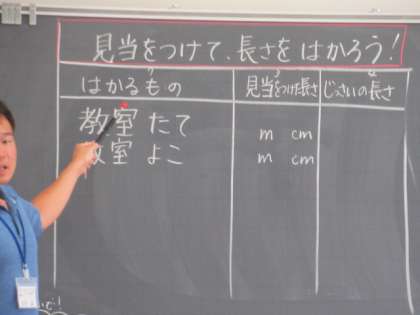 見当をつけて、長さをはかろう!
はかるもの 見当をつけた長さ じっさいの長さ
教室 たて m cm
教室 よこ m cm